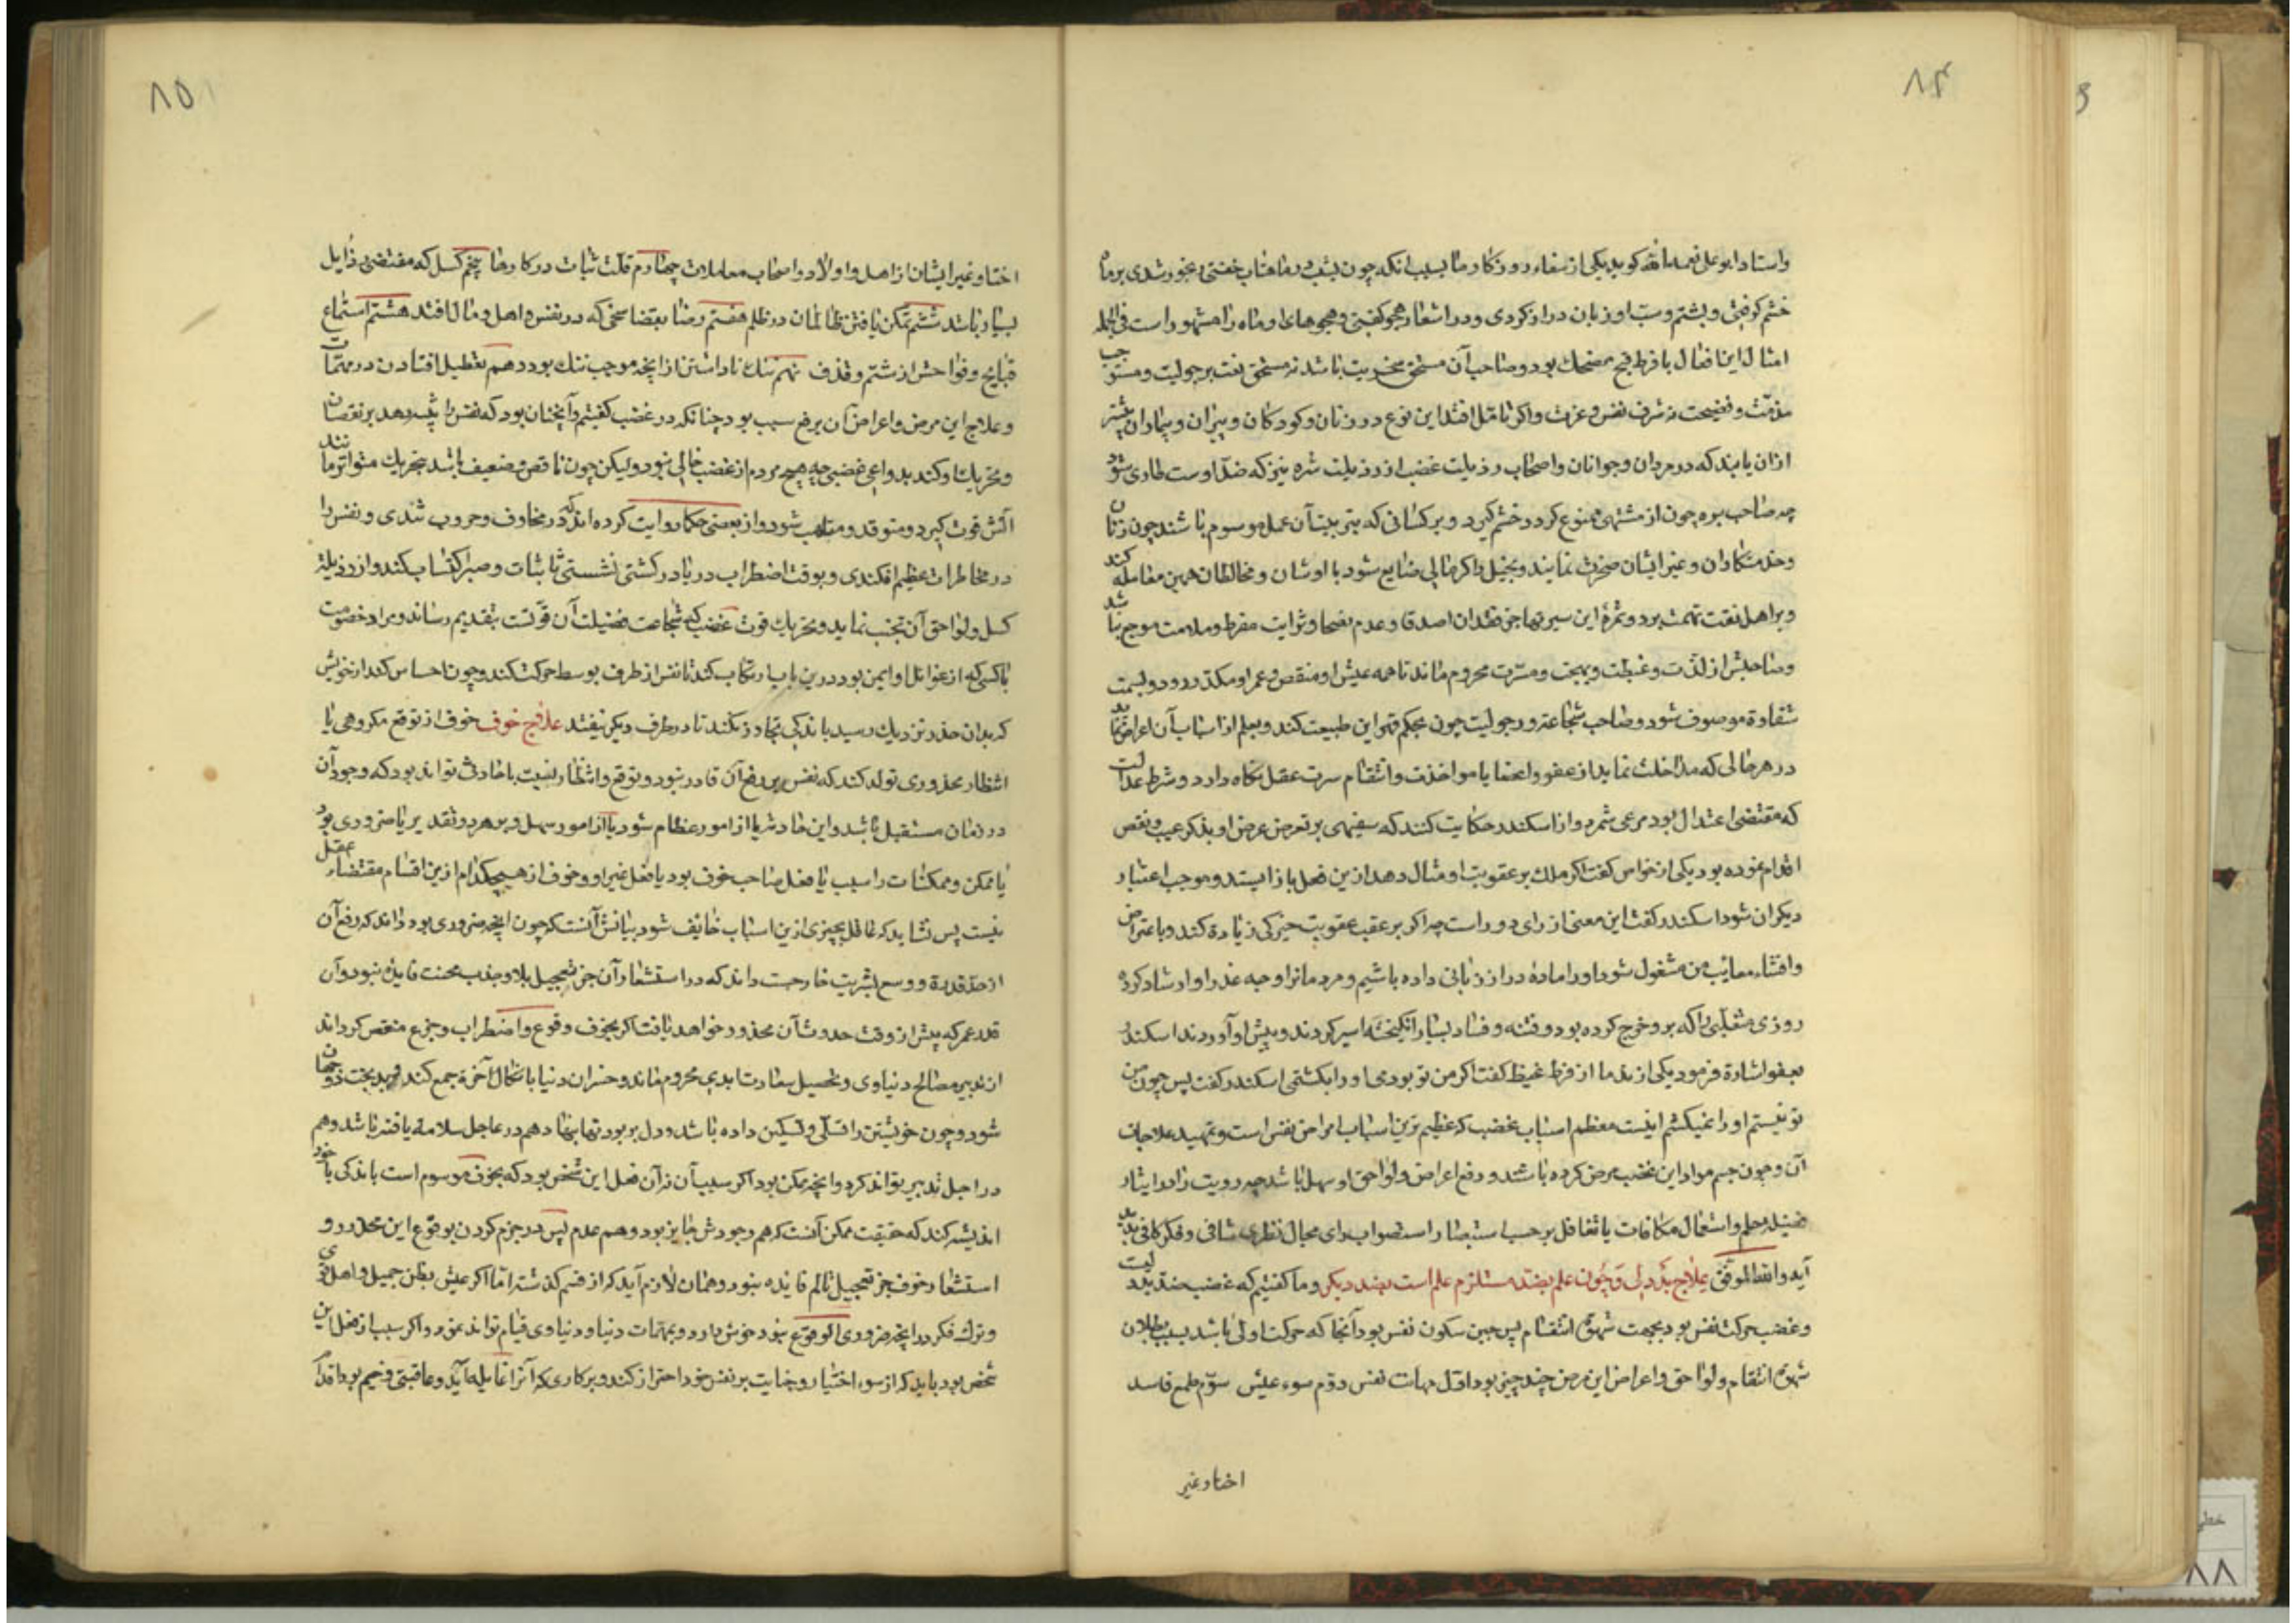 ۸۴
واستاد ابو علی رحمه الله کوید یکی از سفهاء روزکار ما بسبب انکه چون بشب در ماهتاب خفتی رنجور شدی بر ماه
خشم کرفتی و بشتم و سب او زبان دراز کردی و در اشعار هجو کفتی و هجوهاء او ماه را مشهور است فی الجمله
امثال این افعال با فرط قبح مضحک بود و صاحب آن مستحق سخریت باشد نه مستحق نعت برجولیت و مستوجب
مذمت و فضیحت نه شرف نفس و عزت و اکر تامل افتد این نوع در زنان و کودکان و پیران و بیماران بیشتر
ازان یابند که در مردان و جوانان و اصحاء و رذیلت غضب از رذیلت شره نیز که ضد اوست طاری شود
چه صاحب شره چون از مشتهی ممنوع کردد خشم کیرد و بر کسانی که بترتیب آن عمل موسوم باشند چون زنان
و خدمتکاران و غیر ایشان ضجرت نمایند و بخیل را اکر مالی ضایع شود با دوستان و مخالطان همین معامله کند
و بر اهل ثقت تهمت برد و ثمره این سیرتها جز فقدان اصدقا و عدم نصحا و ندامت مفرط و ملامت موجع باشد
و صاحبش از لذت و غبطت و بهجت و مسرت محروم ماند تا همه عیش او منقص و عمر او مکدر رود و بسمت
شقاوة موصوف شود و صاحب شجاعت و رجولیت چون بحکم قهر این طبیعت کند و بعلم از اسباب آن اعراض نماید
در هر حالی که مداخلت نماید از عفو و اغضا یا مواخذت و انتقام سیرت عقل نکاه دارد و شرط عدالت
که مقتضی اعتدال بود مرعی شمرد و از اسکندر حکایت کنند که سفیهی بر تعرض عرض او بذکر عیب و نقص
اقدام نموده بود یکی از خواص کفت اکر ملک بر عقوبت او مثال دهد ازین فعل باز ایستد و موجب اعتبار
دیکران شود اسکندر کفت این معنی از رای دور است چه اکر بر عقب عقوبت خیرکی زیادة کند و باعتراض
و افشاء معایب من مشغول شود او را مادۀ دراز زبانی داده باشیم و مردمانرا وجه عذر او ارشاد کرده
روزی متغلبی را که برو خروج کرده بود و فتنه و فساد بسیار انکیخته اسیر کردند و پیش او آوردند اسکندر
بعفو اشارة فرمود یکی از ندما از فرط غیظ کفت اکر من تو بودمی او را بکشتمی اسکندر کفت پس چون من
تو نیستم او را نمیکشم اینست معظم اسباب غضب که عظیم ترین اسباب امراض نفس است و تمهید علاجات
آن و چون حسم مواد این غضب مرض کرده باشند و دفع اعراض و لواحق او سهل باشد چه رویت را در ایثار
فضیلة حلم و استعمال مکافات یا تغافل بر حسب استبصار استصواب رای مجال نظری شافی و فکر کافی پدید
آید والله الموفق علاج بددلی و چون علم بضد مستلزم علم است بضد دیکر و ما کفتیم که غضب ضد بددلیست
و غضب حرکت نفس بود بجهت شهوة انتقام پس جبن سکون نفس بود آنجا که حرکت اولی باشد بسبب بطلان
شهوة انتقام و لواحق و اعراض این مرض چند چیز بود اول مهانت نفس دوم سوء عیش سوم طمع فاسد
اخسا و غیر
۸۵
اخسا و غیر ایشان از اهل و اولاد و اصحاب معاملات چهارم قلت ثبات در کارها پنجم کسل که مقتضی رذایل
بسیار باشد ششم تمکن یافتن ظالمان در ظلم هفتم رضا بفضایحی که در نفس و اهل و مال افتد هشتم استماع
قبایح و فواحش از شتم و قذف نهم ننک ناداشتن از انچه موجب ننک بود دهم تعطیل افتادن در مهمات
و علاج این مرض و اعراض آن برفع سبب بود چنانکه در غضب کفتیم و آنچنان بود که نفس را تنبیه دهد بر نقصان
و تحریک او کند بدواعی غضبی چه هیچ مردم از غضب خالی نبود و لیکن چون ناقص و ضعیف باشد بتحریک متواتر مانند
اتش قوت کیرد و متوقد و ملتهب شود و از بعضی حکما روایت کرده اند که در مخاوف و حروب شدی و نفس را
در مخاطرات عظیم افکندی و بوقت اضطراب دریا در کشتی نشستی تا ثبات و صبر اکتساب کند و از رذیلة
کسل و لواحق آن تجنب نماید و تحریک قوت غضب که شجاعت فضیلت آن قوتست بتقدیم رساند و مراد خصومت
با کسی که از غوائل او ایمن بود درین باب ارتکاب کند تا نفس از طرف بوسط حرکت کند و چون احساس کند از خویش
که بدان حد نزدیک رسید باندکی تجاوز نکند تا در طرف دیکر نیفتد علاج خوف خوف از توقع مکروهی یا
انتظار محذوری تولد کند که نفس بر دفع آن قادر نبود و توقع و انتظار بنسبت با حادثی تواند بود که وجود آن
در زمان مستقبل باشد و این حادثه یا از امور عظام شود یا از امور سهل و بر هر دو تقدیر یا ضروری بود
یا ممکن و ممکنات را سبب یا فعل صاحب خوف بود یا فعل غیر او و خوف از هیچکدام ازین اقسام مقتضاء عقل
نیست پس نشاید که عاقل بچیزی ازین اسباب خایف شود بیانش آنست که چون انچه ضروری بود داند که دفع آن
از حد قدرة و وسع بشریت خارجست داند که در استشعار آن جز تعجیل بلا و جذب محنت فایدۀ نبود و آن
قدر عمر که پیش از وقت حدوث آن محذور خواهد یافت اکر بخوف وقوع و اضطراب و جزع منغص کرداند
از تدبیر مصالح دنیاوی و تحصیل سعادت ابدی محروم ماند و خسران دنیا با نکال آخرة جمع کند و بدبخت دو جهان
شود و چون خویشتن را تسلی و تسکین داده باشد و دل بر بودنیها بنهاد هم در عاجل سلامة یافته باشد و هم
در اجل تدبیر تواند کرد و انچه ممکن بود اکر سبب آن نه آن فعل این شخص بود که بخوف موسوم است باندکی با خود
اندیشه کند که حقیقت ممکن آنست که هم وجودش جایز بود و هم عدم پس در جزم کردن بوقوع این محذور و
استشعار خوف جز تعجیل تالم فایده نبود و همان لازم آید که از قسم کذشته اما اکر عیش بظن جمیل و امل قوی
و ترک فکر در انچه ضروری الوقوع نبود خوش دارد و بمهمات دنیا و دنیاوی قیام تواند نمود و اکر سبب از فعل این
شخص بود باید که از سوء اختیار و جنایت بر نفس خود احتراز کند و بر کاری که آنرا غایله آید و عاقبتی وخیم بود اقدام